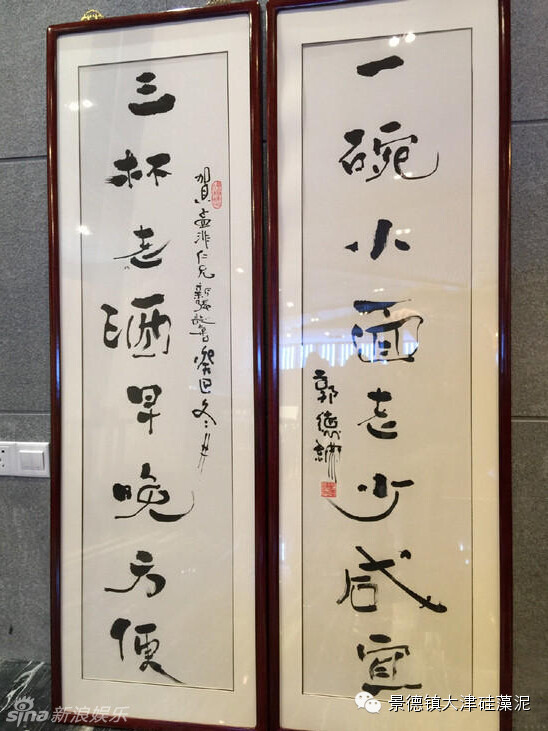 一碗小面老少咸宜
郭德綱
賀孟非仁兄新張誌喜 癸巳冬
三杯老酒早晚方便
sina新浪娱乐
景德镇大津硅藻泥